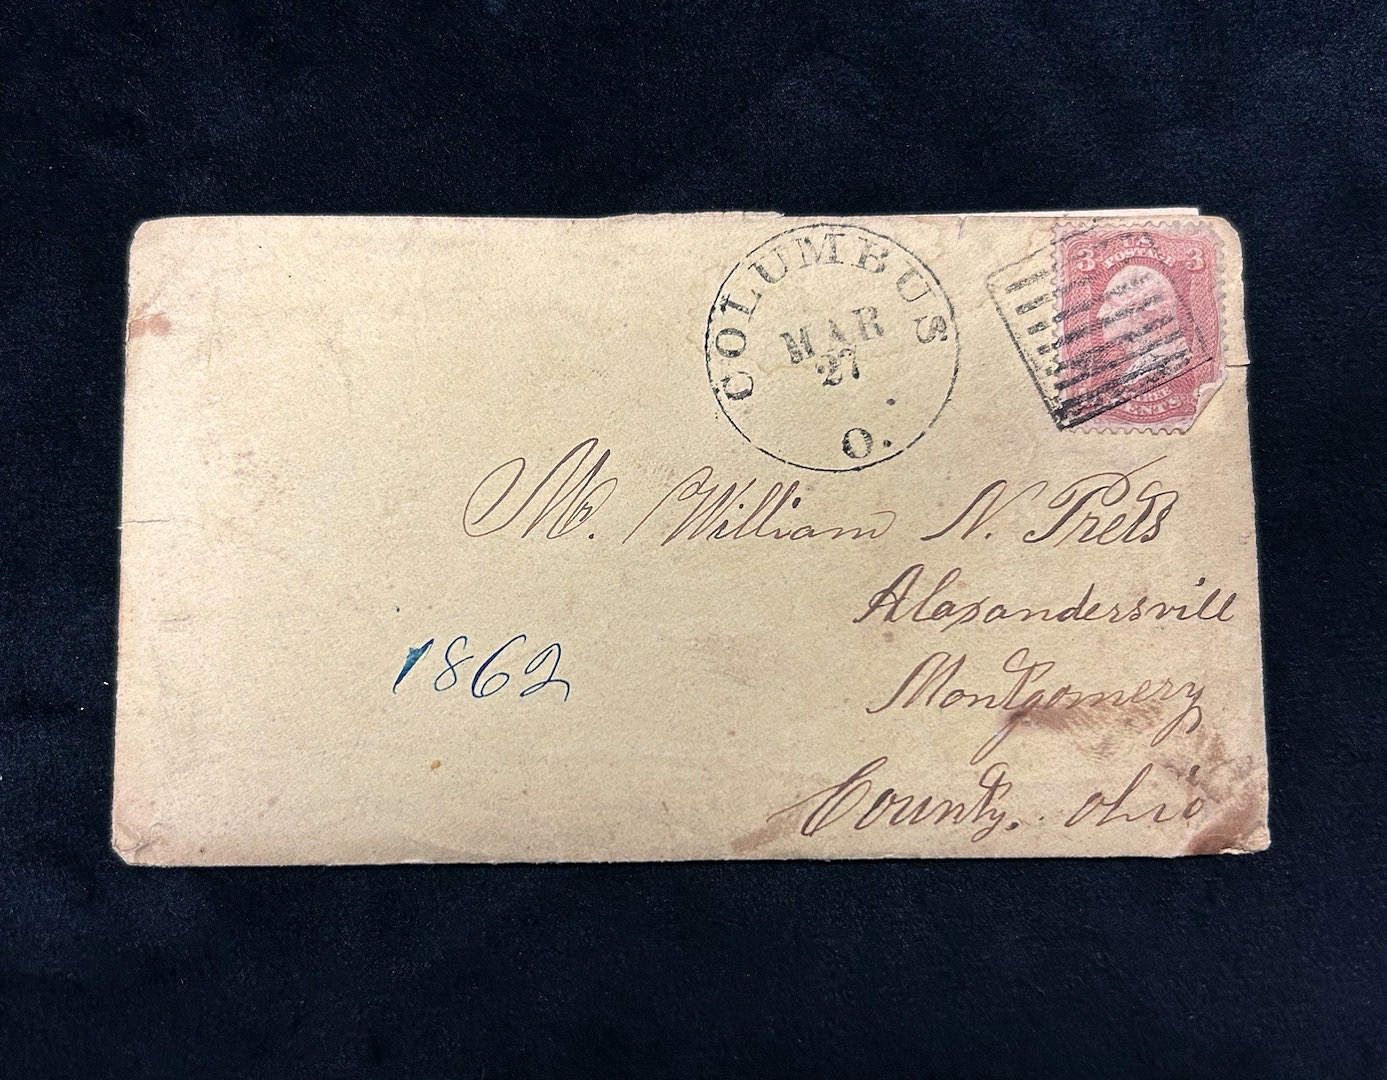 COLUMBUS
MAR
27
O.
3 U.S. 3
POSTAGE
CENTS
Mr. William N. Prets
Alaxandersvill
Montgomery
County, Ohio
1862